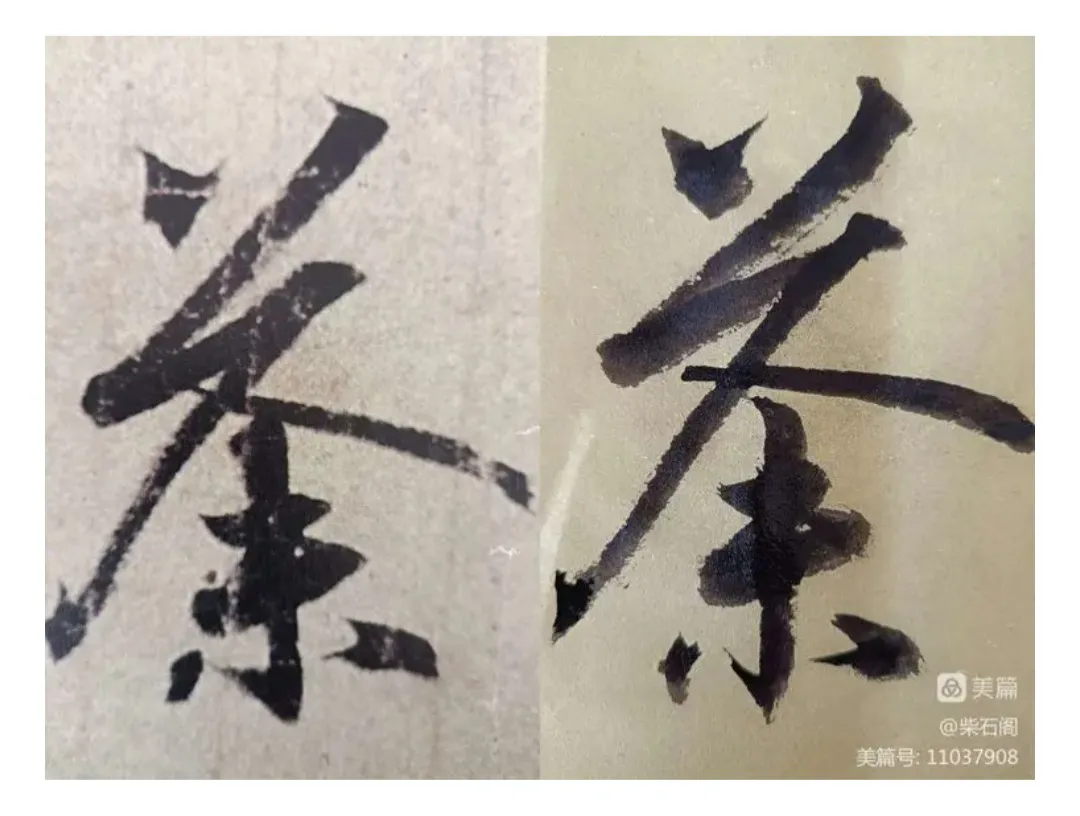 茶 茶
美篇
@柴石阁
美篇号: 11037908